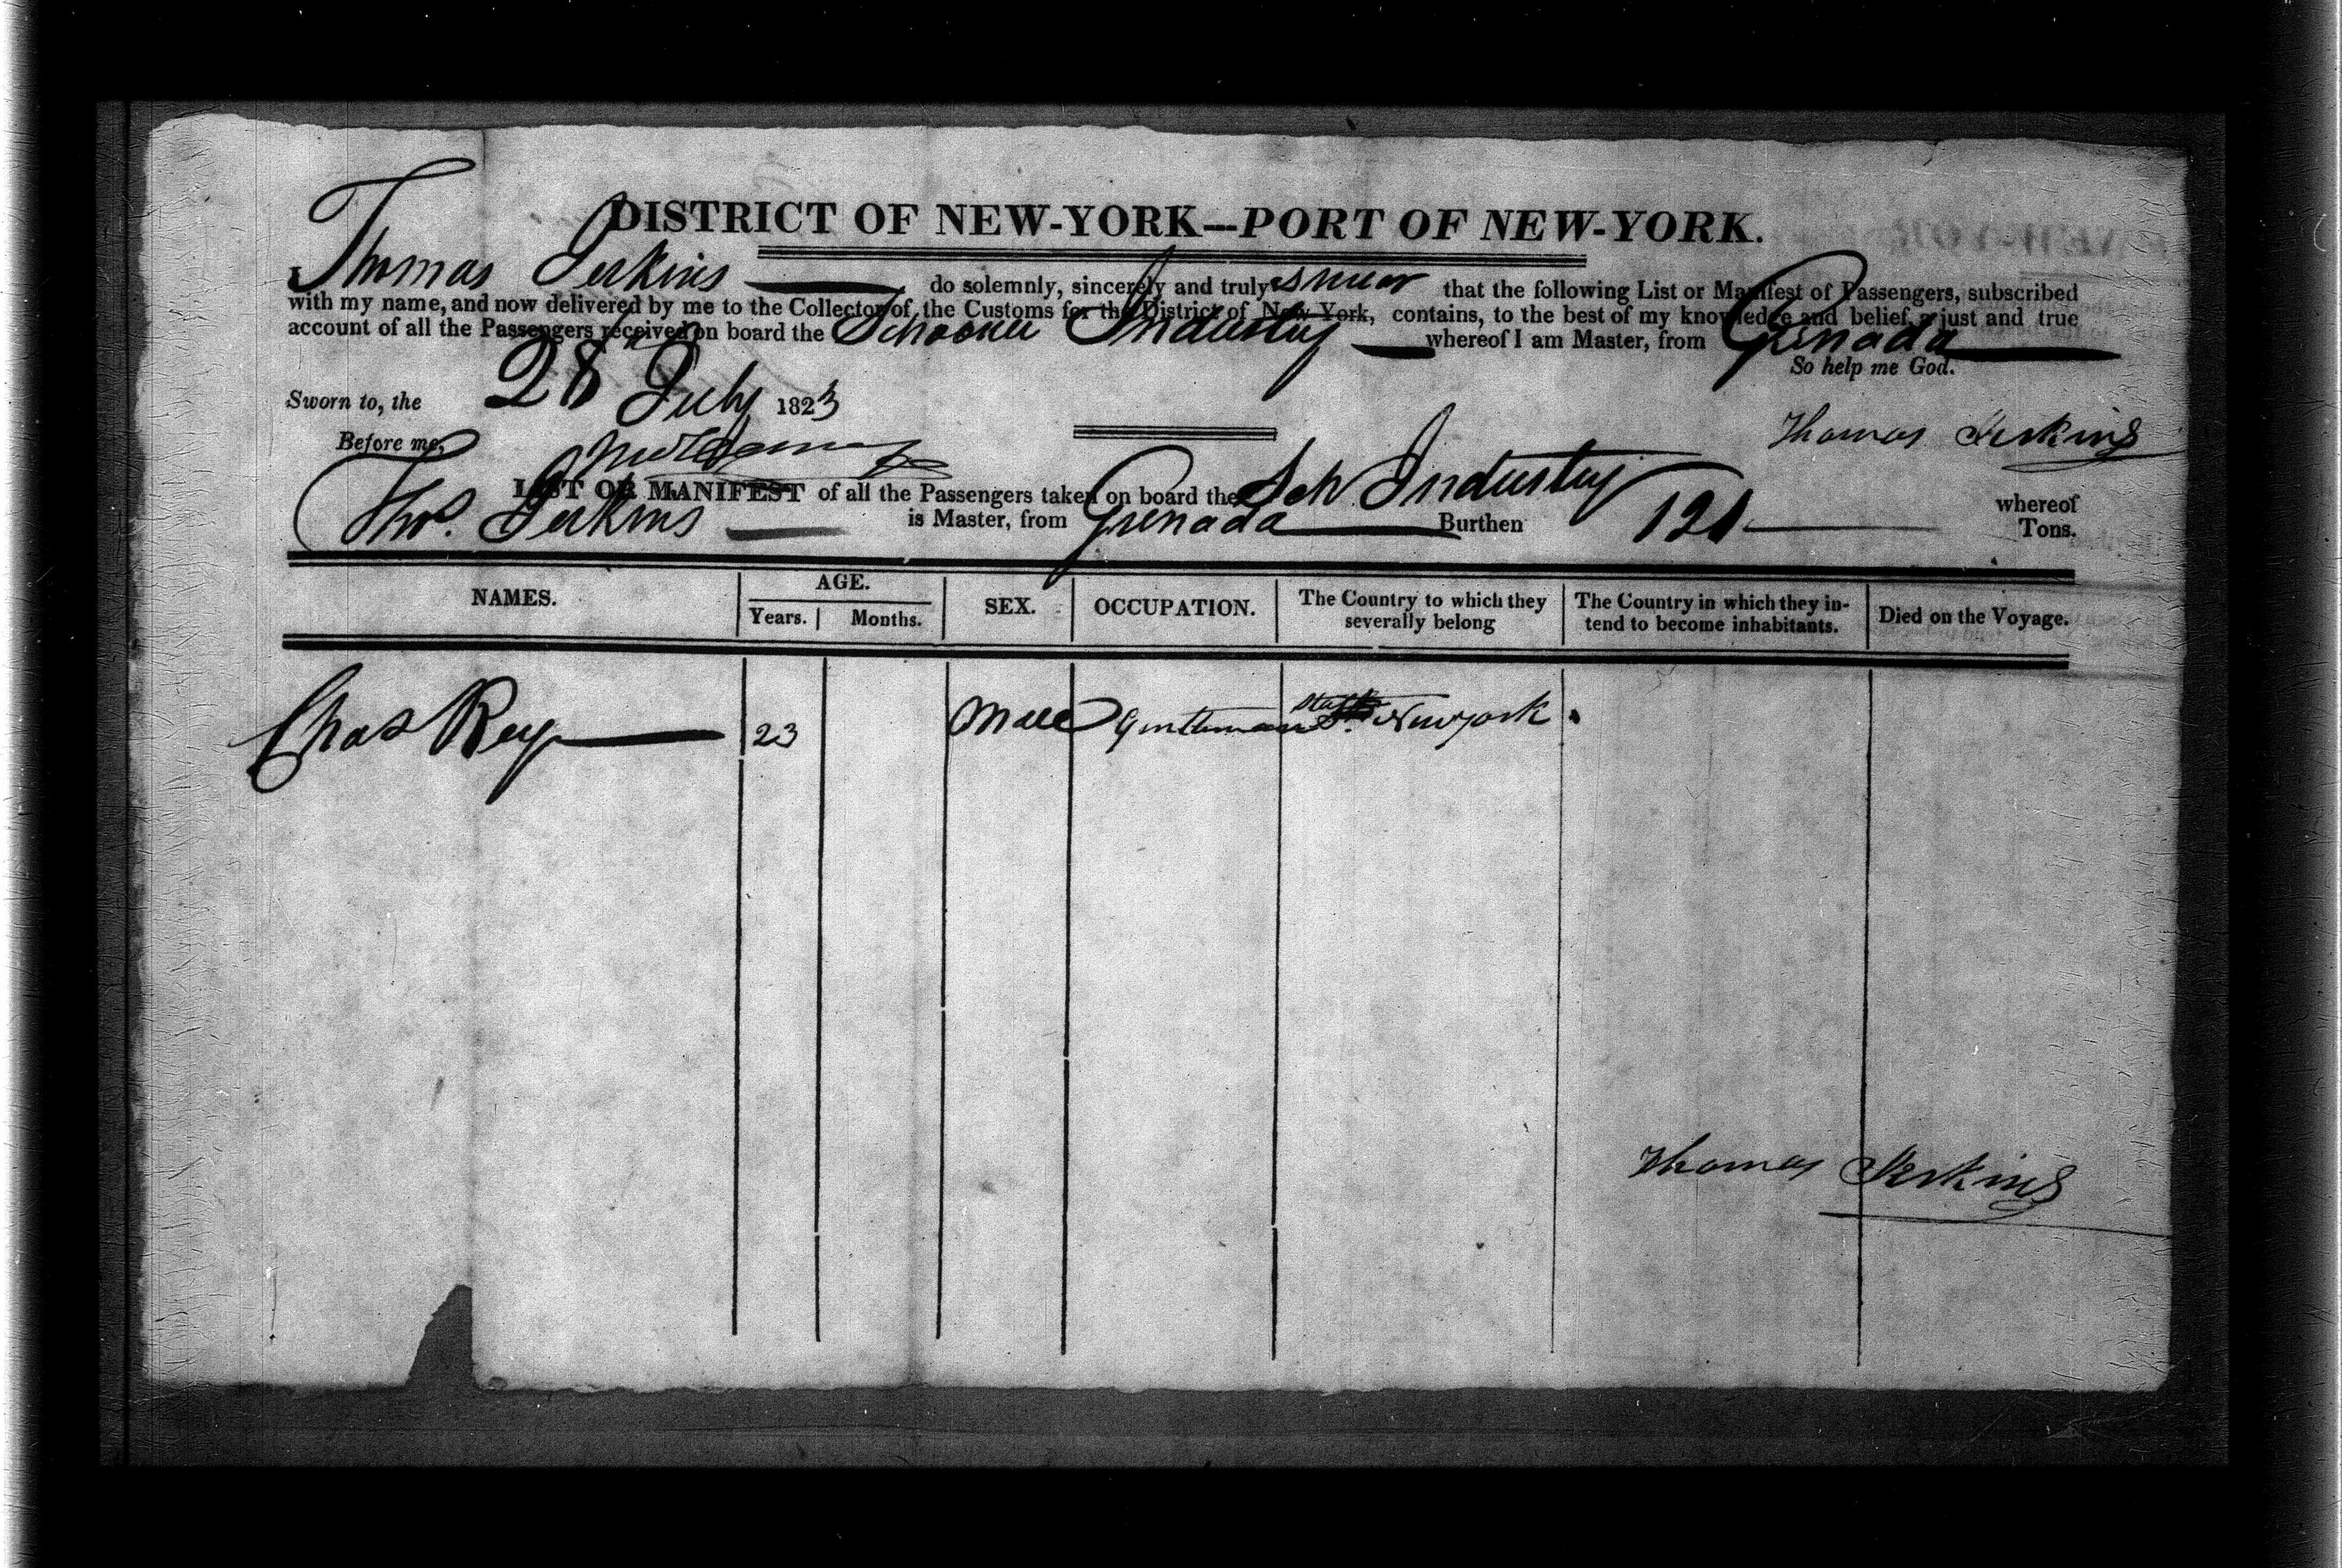 DISTRICT OF NEW-YORK—PORT OF NEW-YORK.
Thomas Jerkins do solemnly, sincerely and truly swear that the following List or Manifest of Passengers, subscribed
with my name, and now delivered by me to the Collector of the Customs for the District of New-York, contains, to the best of my knowledge and belief, a just and true
account of all the Passengers received on board the Schooner Industry whereof I am Master, from Grenada
So help me God.
Sworn to, the 28 July 1823
Thomas Jerkins
Before me,
LIST OR MANIFEST of all the Passengers taken on board the Sch Industry whereof
Thos. Jerkins is Master, from Grenada Burthen 121 Tons.
NAMES. AGE. Years. Months. SEX. OCCUPATION. The Country to which they severally belong The Country in which they intend to become inhabitants. Died on the Voyage.
Chas Rey 23 Male Gentleman Newyork
Thomas Jerkins